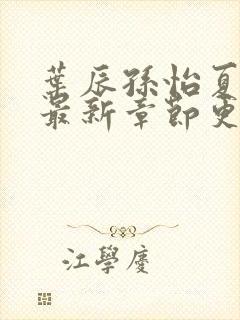 葉辰孫怡夏
最新章節更
江學慶